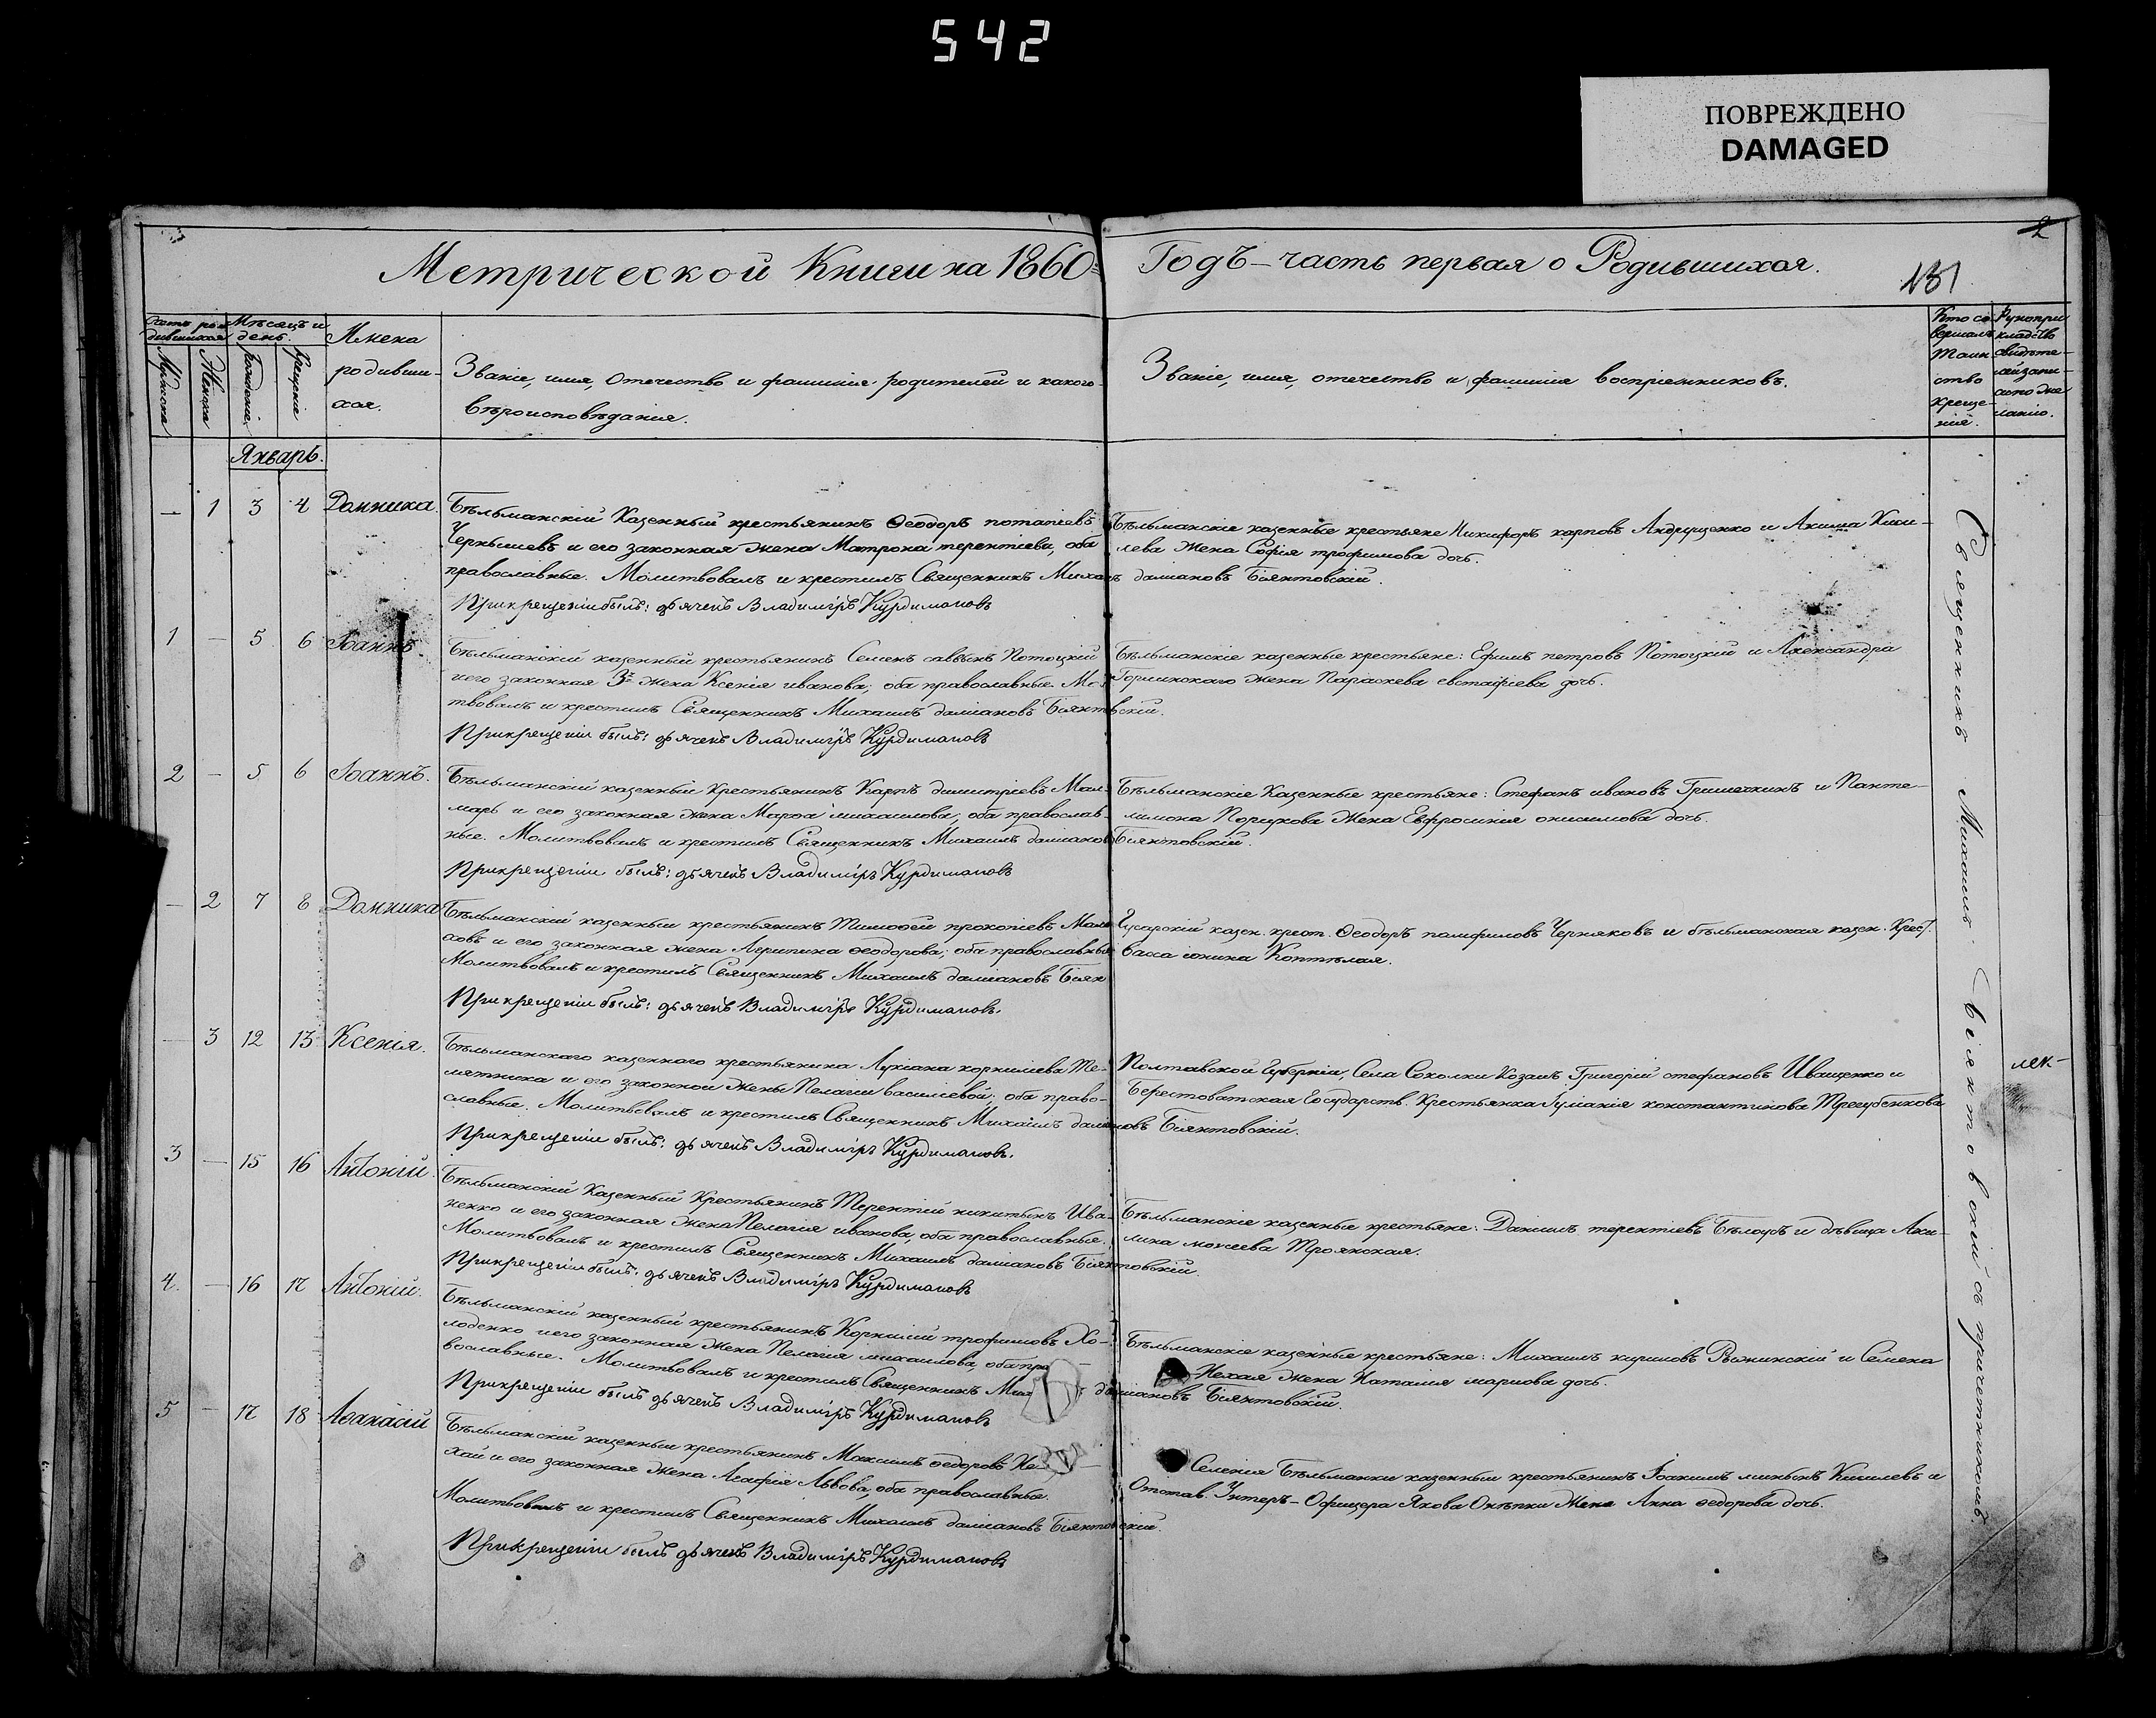 542
ПОВРЕЖДЕНО
DAMAGED
2
Метрической Книги на 1860= Годъ – часть первая о Родившихся.
131
Мѣсяцъ и день.
Имена родивши-хся.
Званіе, имя, отечество и фамилія родителей и какого
вѣроисповѣданія.
Званіе, имя, отечество и фамилія воспріемниковъ.
Кто со-вершалъ таин-ство креще-нія.
Январь.
— 1 3 4 Домника.
Бѣльманскій Казенный крестьянинъ Ѳеодоръ потапіевъ
Чернышевъ и его законная жена Матрона терентіева, оба
православные. Молитвовалъ и крестилъ Священникъ Михаилъ даміановъ Біянтовскій.
При крещеніи былъ: дьячекъ Владиміръ Курдимановъ
Бѣльманскіе казенные крестьяне Никифоръ карповъ Андрущенко и Акима Кики-
лева жена Софія трофимова дочь.
1 — 5 6 Іоаннъ.
Бѣльманскій казенный крестьянинъ Семенъ саввинъ Потоцкій
и его законная 3я жена Ксенія иванова; оба православные. Мо-
твовалъ и крестилъ Священникъ Михаилъ даміановъ Біянтовскій.
При крещеніи былъ: дьячекъ Владиміръ Курдимановъ
Бѣльманскіе казенные крестьяне: Ефимъ петровъ Потоцкій и Александра
жена Параскева евстафіева дочь.
2 — 5 6 Іоаннъ.
Бѣльманскій казенный крестьянинъ Карпъ димитріевъ
марь и его законная жена Марѳа михаилова; оба православ-
ные. Молитвовалъ и крестилъ Священникъ Михаилъ даміановъ Біянтовскій.
При крещеніи былъ: дьячекъ Владиміръ Курдимановъ
Бѣльманскіе Казенные крестьяне: Стефанъ ивановъ Гришечкинъ и Панте-
лимона жена Евфросинія онисимова дочь.
— 2 7 8 Домника
Бѣльманскій казенный крестьянинъ Тимоѳей прокопіевъ
совъ и его законная жена Агрипина ѳеодорова; оба православные
Молитвовалъ и крестилъ Священникъ Михаилъ даміановъ Біян
При крещеніи былъ: дьячекъ Владиміръ Курдимановъ.
казен. крест. Ѳеодоръ памфиловъ Черняковъ и бѣльманская казен. Крест.
васса
— 3 12 13 Ксенія.
Бѣльманскаго казеннаго крестьянина Лукіана корниліева Те-
лятника и его законной жены Пелагіи василіевой; оба право-
славные. Молитвовалъ и крестилъ Священникъ Михаилъ даміановъ Біянтовскій.
При крещеніи былъ: дьячекъ Владиміръ Курдимановъ.
Полтавской Губерніи, Села Соколки Козакъ Григорій стефановъ Иващенко и
Берестоватская Государств. Крестьянка константинова Трегубенкова
3 — 15 16 Антоній.
Бѣльманскій Казенный Крестьянинъ Терентій никитинъ Ива-
ненко и его законная жена Пелагія иванова, оба православные.
Молитвовалъ и крестилъ Священникъ Михаилъ даміановъ Біянтовскій.
При крещеніи былъ: дьячекъ Владиміръ Курдимановъ
Бѣльманскіе казенные крестьяне: Даніилъ терентіевъ и дѣвица Аку-
лина моисеева Троянская.
4. — 16 17 Антоній.
Бѣльманскій казенный крестьянинъ Корнилій трофимовъ Хо-
лоденко и его законная жена Пелагія михаилова, оба пра
вославные. Молитвовалъ и крестилъ Священникъ Мих даміановъ Біянтовскій.
При крещеніи былъ дьячекъ Владиміръ Курдимановъ
Бѣльманскіе казенные крестьяне: Михаилъ кириловъ и Семена
Нехая жена Наталія маркова дочь.
5 — 17 18 Аѳанасій
Бѣльманскій казенный крестьянинъ Максимъ ѳедоровъ Не-
хай и его законная жена Агафія Львова, оба православные.
Молитвовалъ и крестилъ Священникъ Михаилъ даміановъ Біянтовскій.
При крещеніи былъ дьячекъ Владиміръ Курдимановъ
Селенія Бѣльманки казенный крестьянинъ Іоакимъ мининъ Кикилевъ и
Отстав. Унтеръ-Офицера Якова жена Анна ѳедорова дочь.
Священникъ Михаилъ Біянтовскій съ причетникомъ